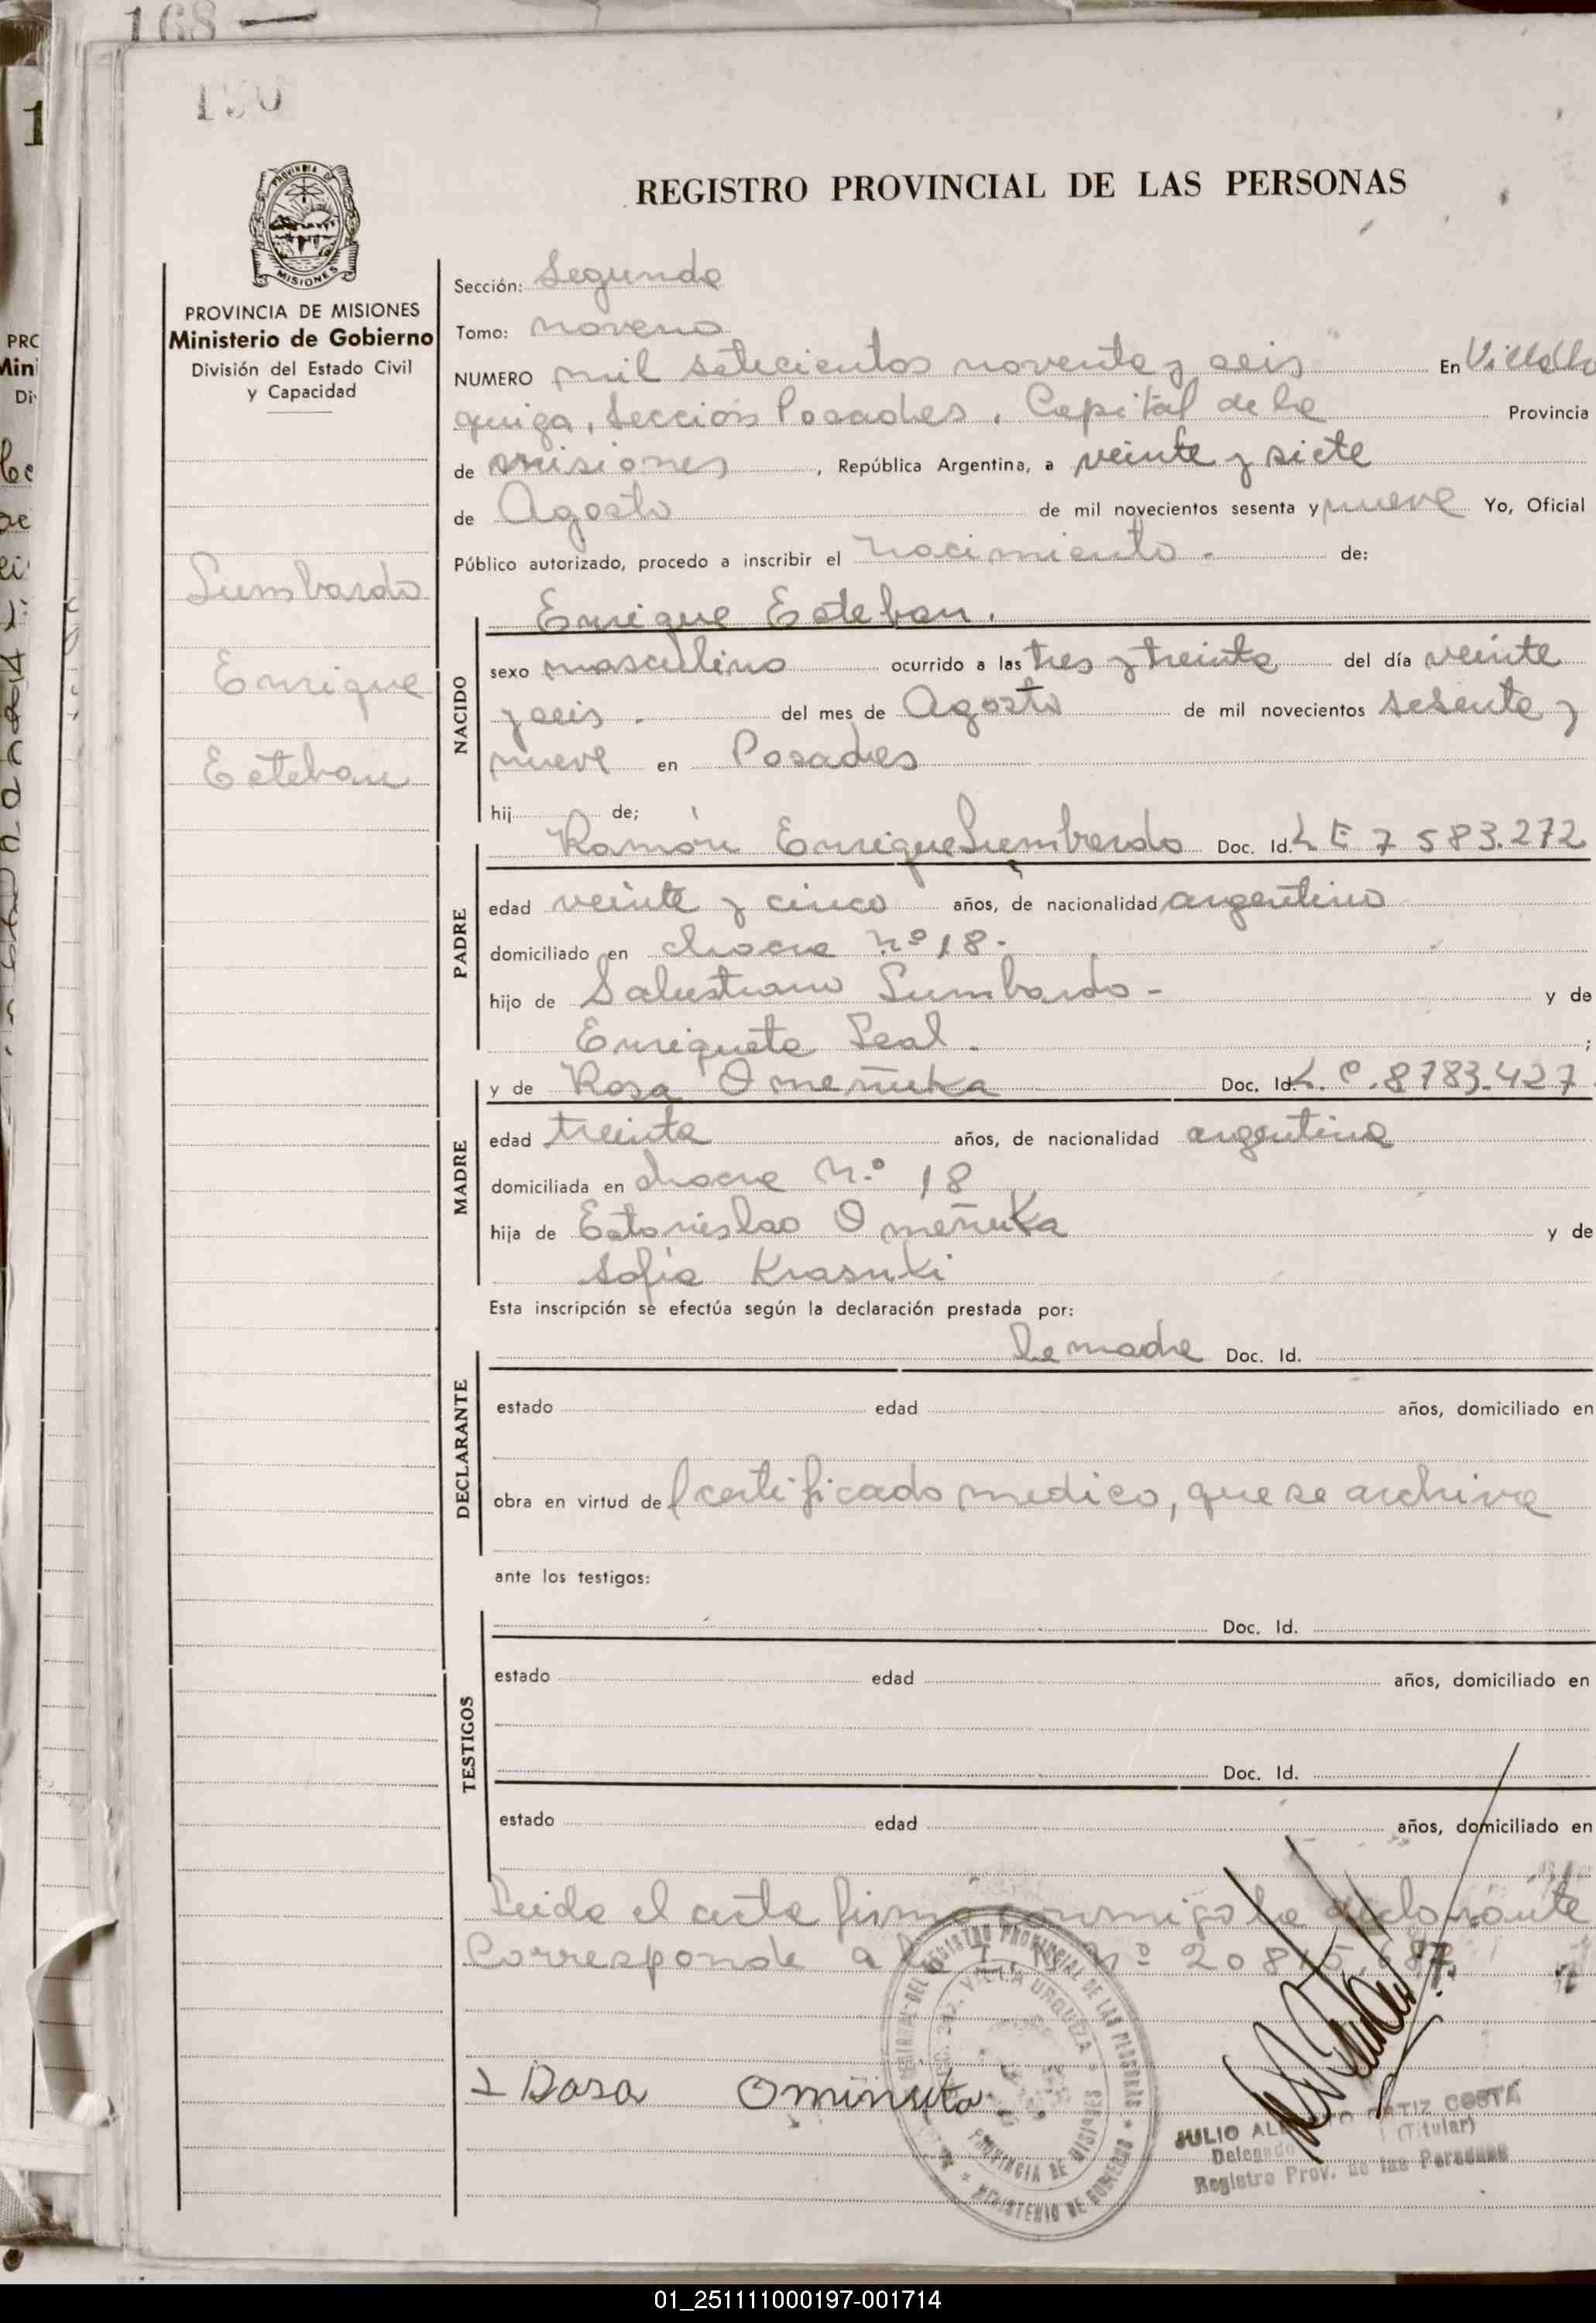 168 —
190
REGISTRO PROVINCIAL DE LAS PERSONAS
PROVINCIA DE MISIONES
Ministerio de Gobierno
División del Estado Civil
y Capacidad
Lumbardo
Enrique
Esteban
Sección: Segunda
Tomo: noveno
NUMERO mil setecientos noventa y seis En Villa
quiza, Sección Posadas, Capital de la Provincia
de misiones, República Argentina, a veinte y siete
de Agosto de mil novecientos sesenta y nueve Yo, Oficial
Público autorizado, procedo a inscribir el nacimiento - de:
NACIDO
Enrique Esteban.
sexo masculino ocurrido a las tres y treinta del día veinte
y seis. del mes de Agosto de mil novecientos sesenta y
nueve en Posadas
hij de;
PADRE
Ramón Enrique Lumbardo Doc. Id. L E 7 583.272
edad veinte y cinco años, de nacionalidad argentino
domiciliado en chacra Nº 18.
hijo de Salustiano Lumbardo - y de
Enriqueta Leal - ;
MADRE
y de Rosa Omeñuka Doc. Id. L.C. 8783.427
edad treinta años, de nacionalidad argentina
domiciliada en chacra N.º 18
hija de Estanislao Omeñuka y de
Sofia Krasuki
Esta inscripción se efectúa según la declaración prestada por:
DECLARANTE
la madre Doc. Id.
estado edad años, domiciliado en
obra en virtud del certificado medico, que se archiva
ante los testigos:
TESTIGOS
Doc. Id.
estado edad años, domiciliado en
Doc. Id.
estado edad años, domiciliado en
Leida el acta firma conmigo la declarante
Corresponde a la Nº 20815.
Ominuta
VILLA URQUIZA
PROVINCIA DE MISIONES
MINISTERIO DE GOBIERNO
JULIO ORTIZ COSTA
(Titular)
Delegado
Registro Prov. de las Personas
01_251111000197-001714